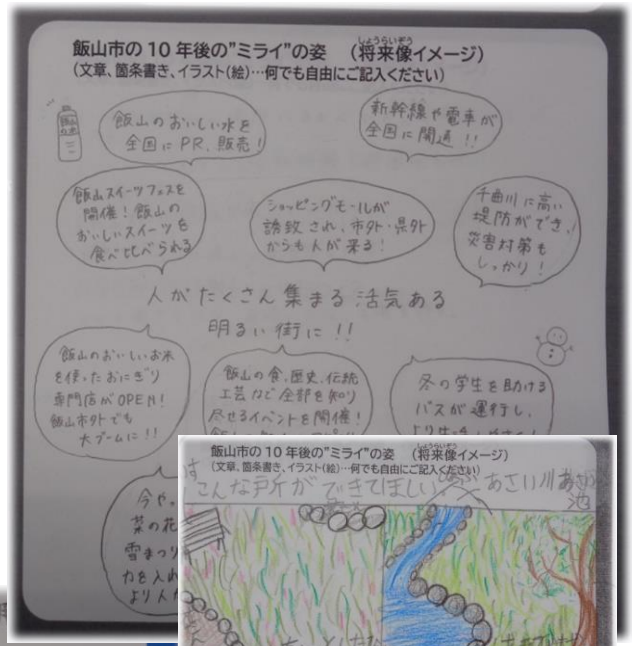 飯山市の10年後の"ミライ"の姿 (将来像イメージ)
しょうらいぞう
(文章、箇条書き、イラスト(絵)…何でも自由にご記入ください)
飯山のおいしい水を
全国にPR、販売!
新幹線や電車が
全国に開通!!
飯山スイーツフェスを
開催!飯山の
おいしいスイーツを
食べ比べられる
ショッピングモールが
誘致され、市外・県外
からも人が来る!
千曲川に高い
堤防ができ、
災害対策も
しっかり!
人がたくさん集まる活気ある
明るい街に!!
飯山のおいしいお米
を使ったおにぎり
専門店がOPEN!
飯山市外でも
大ブームに!!
飯山の食、歴史、伝統
工芸など全部を知り
尽せるイベントを開催!
冬の学生を助ける
バスが運行し、
今やっ
菜の花
雪まつり
力を入れ
より人が
飯山市の10年後の"ミライ"の姿 (将来像イメージ)
しょうらいぞう
(文章、箇条書き、イラスト(絵)…何でも自由にご記入ください)
こんな所ができてほしい
あさい川
池